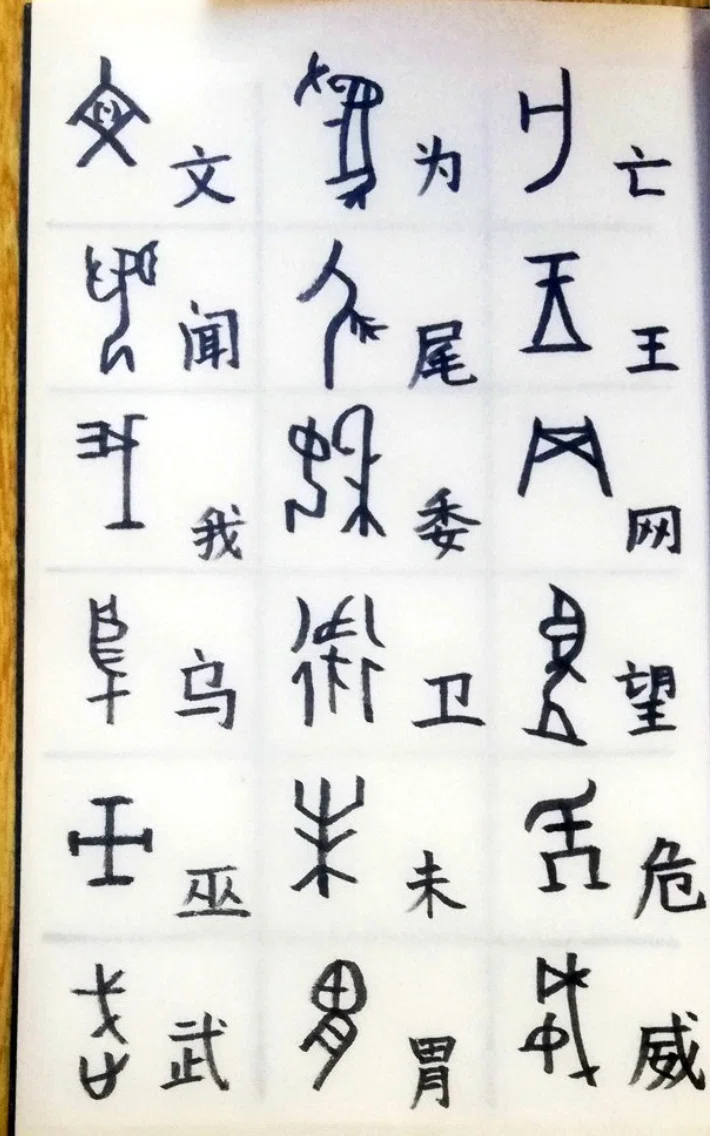 文 为 亡
闻 尾 王
我 委 网
乌 卫 望
巫 未 危
武 胃 威